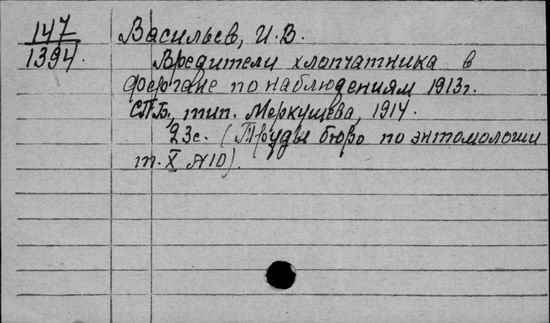 147
1394.
Васильев, И. В.
Вредители хлопчатника в
Фергане по наблюдениям 1913г.
СПБ, тип. Меркушева, 1914.
23с. (Труды бюро по энтомологии
т. X №10).